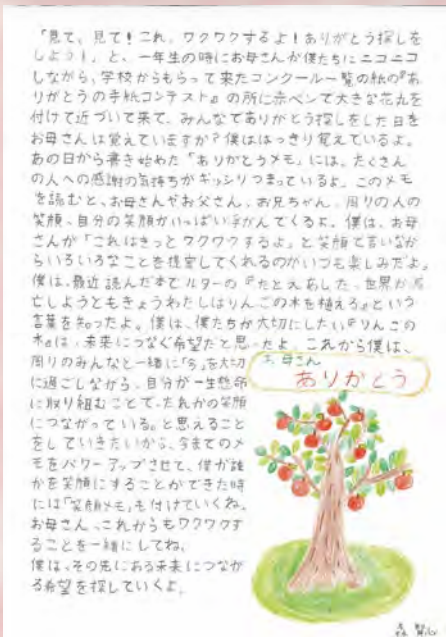 「見て、見て!これ、ワクワクするよ!ありがとう探しを
しよう!」と、一年生の時にお母さんが僕たちにニコニコ
しながら、学校からもらって来たコンクール一覧の紙の『あ
りがとうの手紙コンテスト』の所に赤ペンで大きな花丸を
付けて近づいて来て、みんなでありがとう探しをした日を
お母さんは覚えていますか?僕ははっきり覚えているよ。
あの日から書き始めた「ありがとうメモ」には、たくさん
の人への感謝の気持ちがギッシリつまっているよ。このメモ
を読むと、お母さんやお父さん、お兄ちゃん、周りの人の
笑顔、自分の笑顔がいっぱい浮かんでくるよ。僕は、お母
さんが「これはきっとワクワクするよ」と笑顔で言いなが
らいろいろなことを提案してくれるのがいつも楽しみだよ。
僕は、最近読んだ本でルターの『たとえあした、世界が滅
亡しようともきょうわたしはりんごの木を植える』という
言葉を知ったよ。僕は、僕たちが大切にしたい『りんごの
木』は、未来につなぐ希望だと思ったよ。これから僕は、
周りのみんなと一緒に「今」を大切
に過ごしながら、自分が一生懸命
に取り組むことで、だれかの笑顔
につながっている。と思えること
をしていきたいから、今までのメ
モをパワーアップさせて、僕が誰
かを笑顔にすることができた時
には「笑顔メモ」も付けていくね。
お母さん、これからもワクワクす
ることを一緒にしてね。
僕は、その先にある未来につなが
る希望を探していくよ。
お母さん
ありがとう